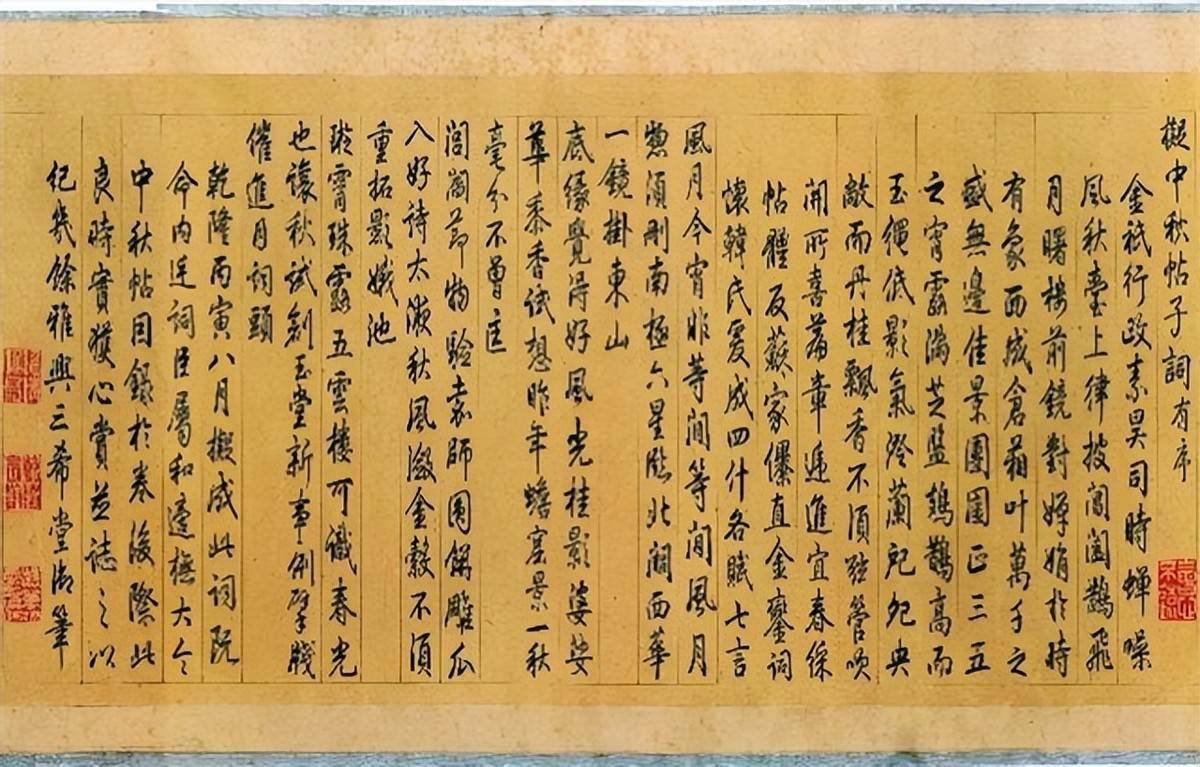 擬中秋帖子詞有序
金祇行政素昊司時蟬噪
風秋臺上律披閶闔鵲飛
月曙樓前鏡對嬋娟於時
有象西成倉箱叶萬千之
盛無邊佳景團圞正三五
之宵露滿芝盤鳷鵲高而
玉繩低影氣冷蘭央
敞而丹桂飄香不須弦管喚
開所喜篇章遞進宜春綵
帖體反蘇家儤直金鑾詞
懷韓氏爰成四什各賦七言
風月今宵非等閒等閒風月
須刪南極六星臨北闕西華
一鏡掛東山
底緣覺得好風光桂影婆娑
黍香試想昨年蟾窟景一秋
毫分不曾
閶闔節物驗京師圓餅雕瓜
入好詩太液秋風瀲金縠不須
重拓影娥池
璇霄珠露五雲樓可識春光
也讓秋試創玉堂新事例擘牋
催進月詞頭
乾隆丙寅八月擬成此詞既
命內廷詞臣屬和適撫大令
中秋帖因錄於卷後際此
良時實獲心賞並誌之以
紀幾餘雅興三希堂御筆